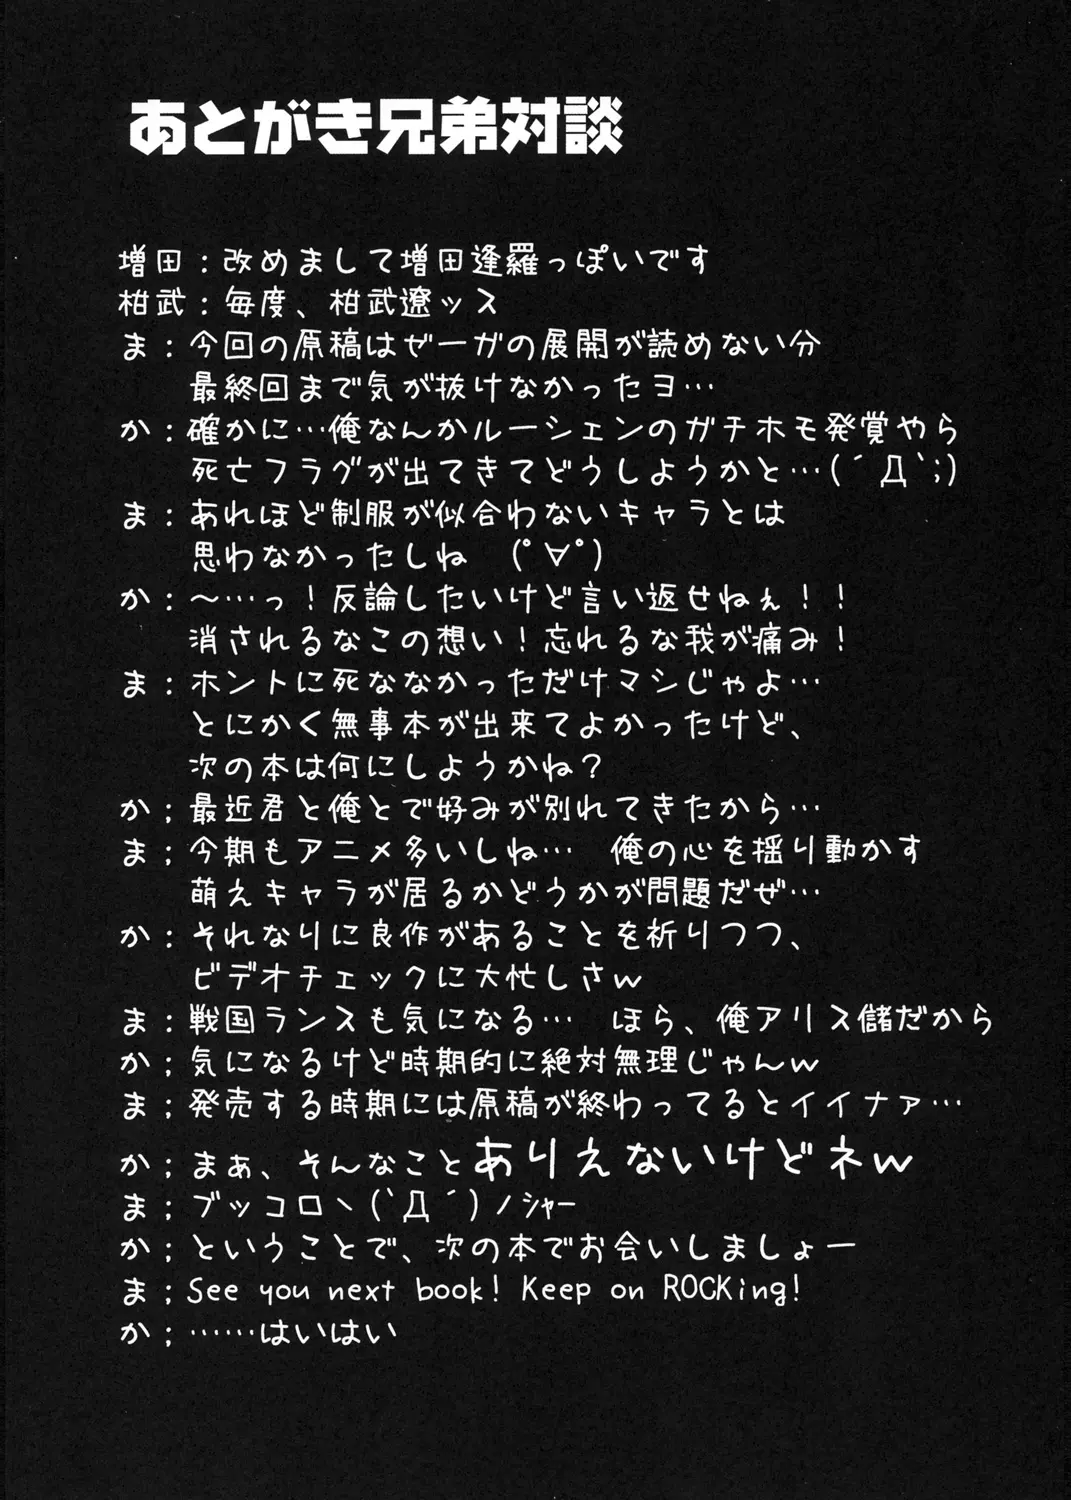 あとがき兄弟対談
増田：改めまして増田逢羅っぽいです
柑武：毎度、柑武遼ッス
ま：今回の原稿はゼーガの展開が読めない分
最終回まで気が抜けなかったヨ…
か：確かに…俺なんかルーシェンのガチホモ発覚やら
死亡フラグが出てきてどうしようかと…(´Д`;)
ま：あれほど制服が似合わないキャラとは
思わなかったしね　(ﾟ∀ﾟ)
か：～…っ！反論したいけど言い返せねぇ！！
消されるなこの想い！忘れるな我が痛み！
ま：ホントに死ななかっただけマシじゃよ…
とにかく無事本が出来てよかったけど、
次の本は何にしようかね？
か；最近君と俺とで好みが別れてきたから…
ま；今期もアニメ多いしね…　俺の心を揺り動かす
萌えキャラが居るかどうかが問題だぜ…
か：それなりに良作があることを祈りつつ、
ビデオチェックに大忙しさw
ま：戦国ランスも気になる…　ほら、俺アリス儲だから
か；気になるけど時期的に絶対無理じゃんw
ま；発売する時期には原稿が終わってるとイイナァ…
か；まぁ、そんなことありえないけどネw
ま；ブッコロヽ(`Д´)ノｼｬｰ
か；ということで、次の本でお会いしましょー
ま；See you next book! Keep on ROCKing!
か；……はいはい